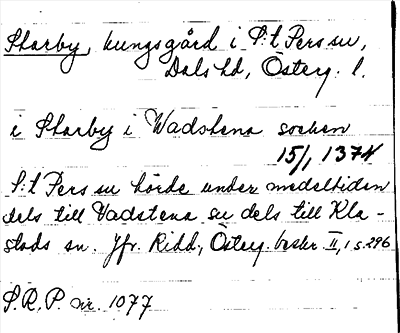 Starby, kungsgård i S:t Pers sn,
Dals hd, Österg. l.
i Starby i Wadstena socken
15/1, 1374
S:t Pers sn hörde under medeltiden
dels till Vadstena sn dels till Kla-
stads sn. Jfr. Ridd., Österg. beskr. II, 1 s. 296
S.R.P. nr. 1077